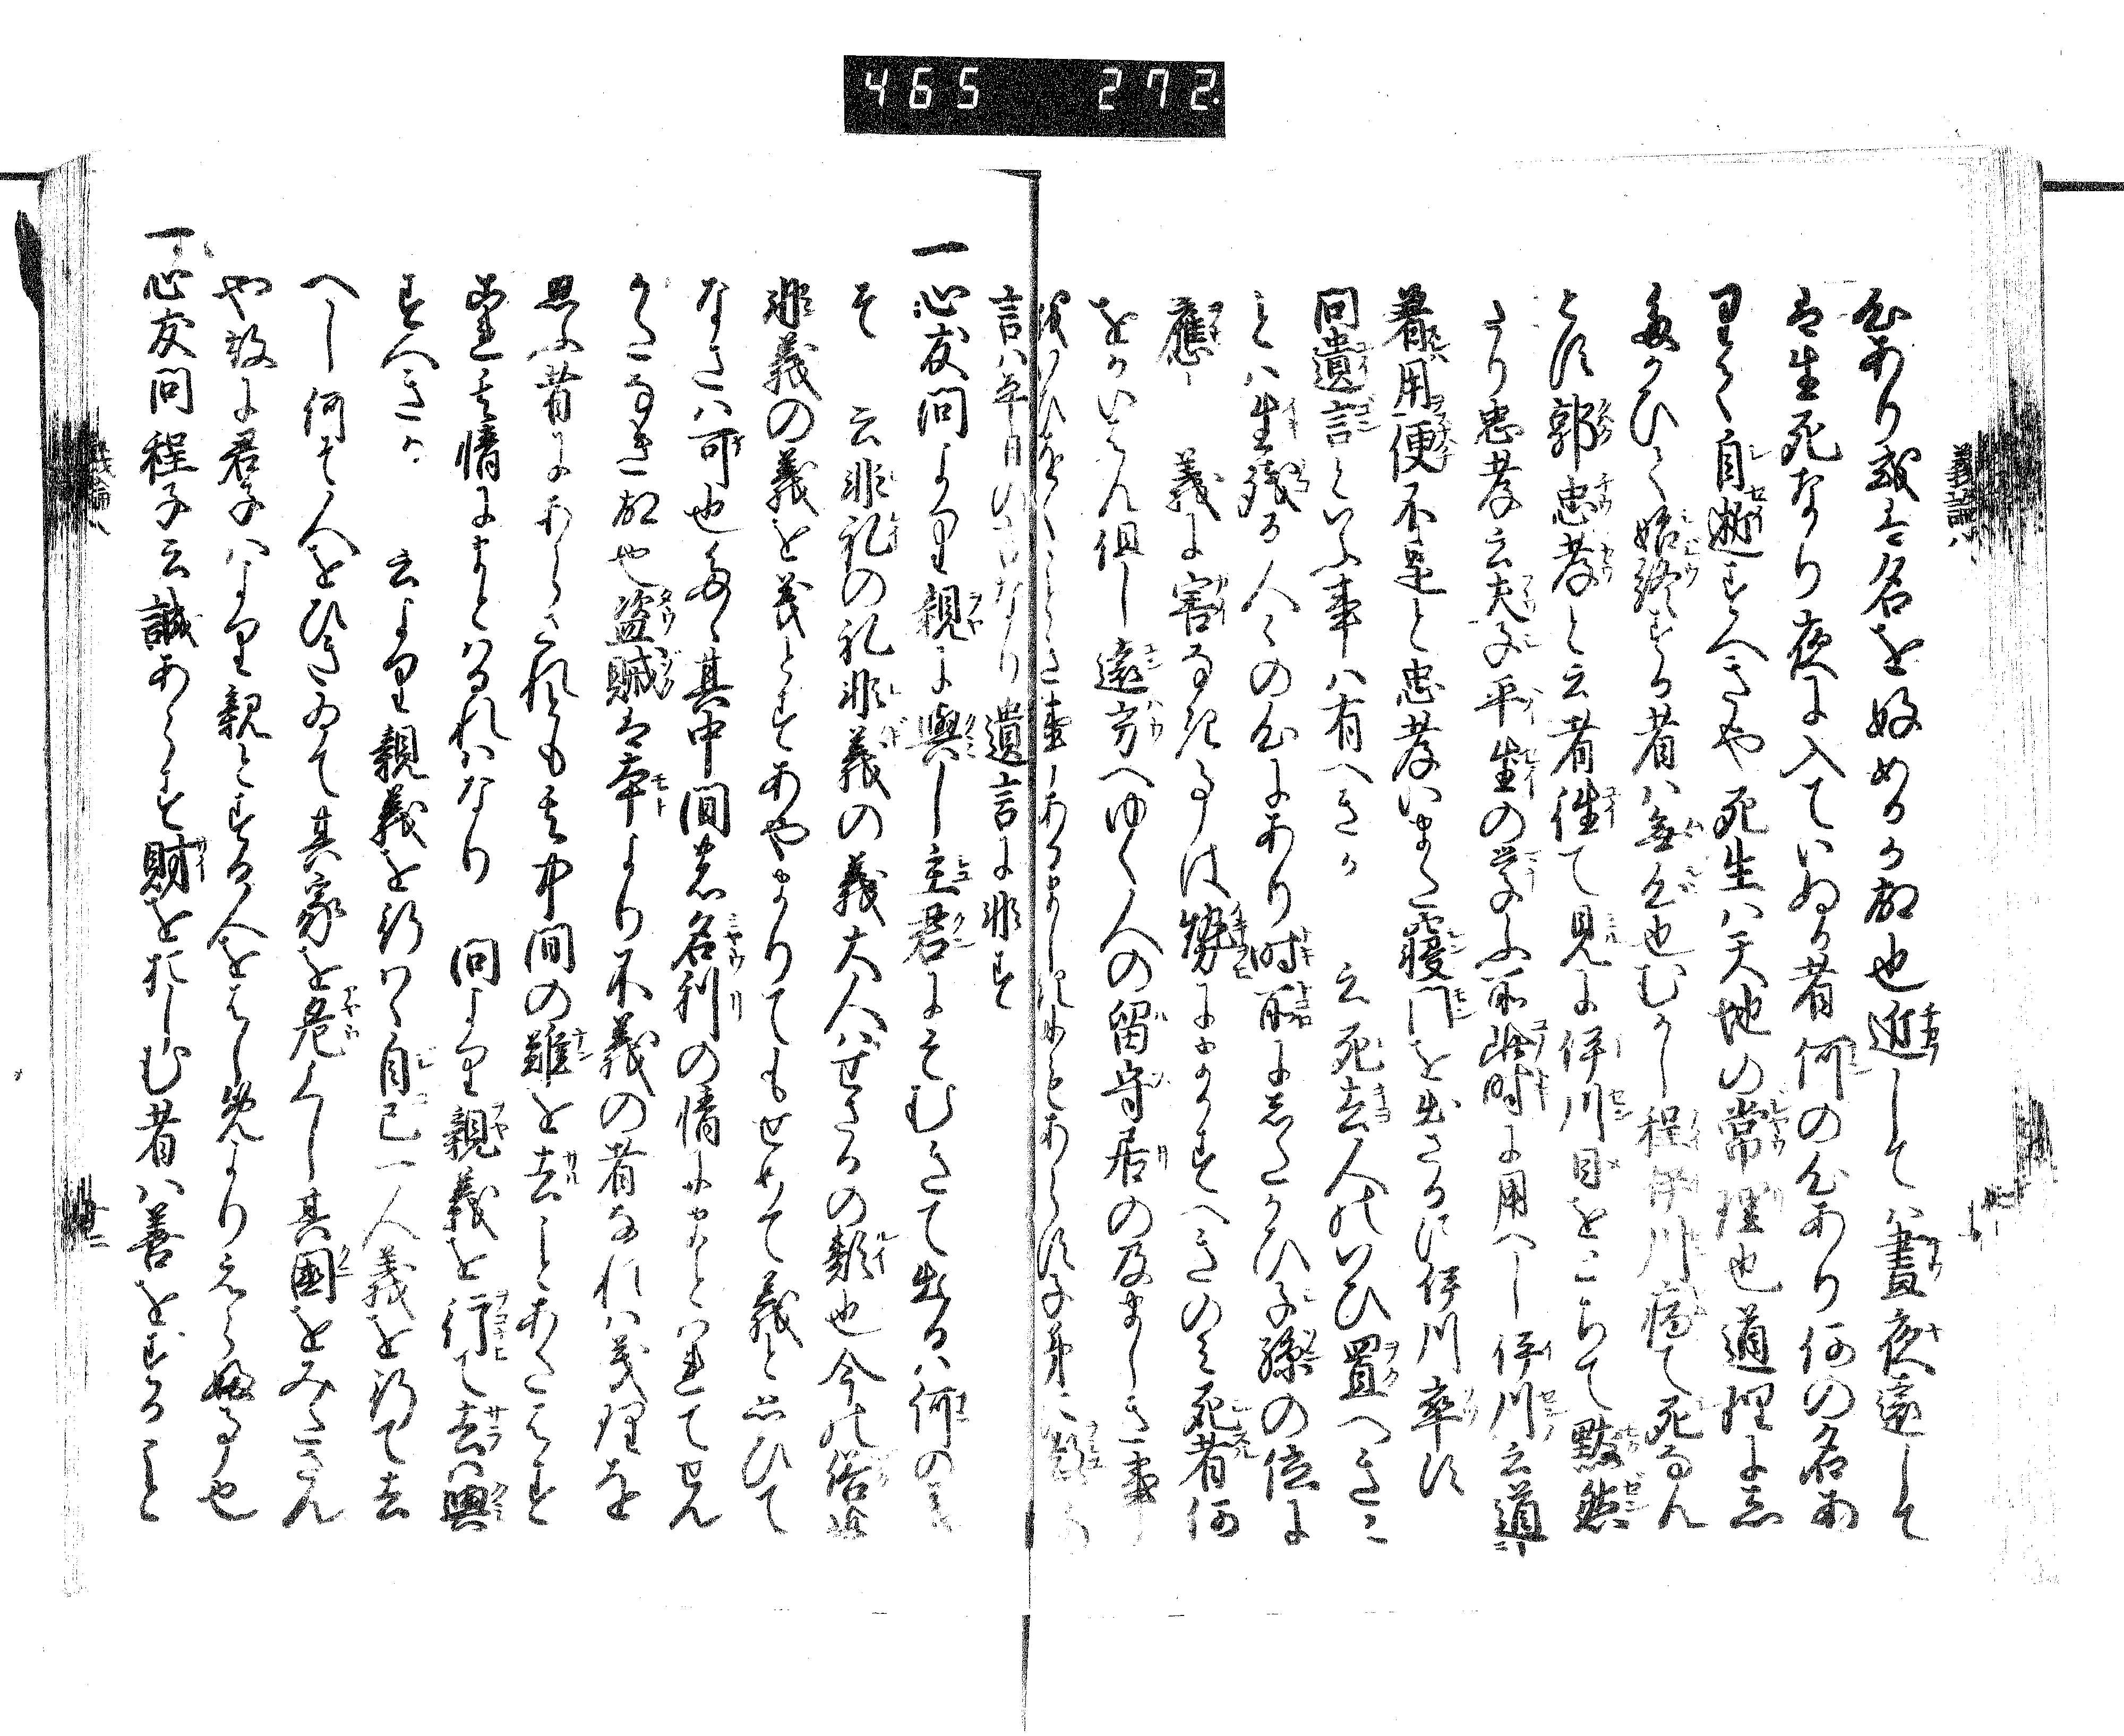 465 272
心あり或は名を好めるか故也近しては晝夜遠して
は生死なり夜に入ていぬる者何の心あり何の名あ
りて自逝すへきや死生は天地の常理也道理にし
たかひて始終する者は無心也むかし程伊川病て死なん
とす郭忠孝と云者往て見に伊川目をとちて黙然
たり忠孝云夫子平生の学ふ所此時に用へし伊川云道
著用便不是と忠孝いまた寝門を出さるに伊川卒す
問遺言といふ事は有へきか 云死去人のいひ置へきこ
とは生残る人々の心にあり時所にしたかひ子孫の位に
應し義に害なき事は勢にまかすへきのみ死者何
をかいはん但し遠方へゆく人の留守居の及ましき事
言は平日の言なり遺言に非す
一心友問より親に與し主君にそむきて出るは何の
そ 云非礼の礼非義の義大人はせさるの類也今の俗
非義の義を義とすあやまりてもせめて義と思ひて
なさは可也多くは其中間の名利の情にまとはれてせん
かたなき故也盗賊は本より不義の者なれは義理を
思ふ者にあらされとも其中間の難を去ことあたはす
皆其情にまとはるれはなり 問より親義を行て去は與
すへきか 云より親義を行はゝ自己一人義を行て去
へし何そ人をひきゐて其家を危くし其國をみたさん
や故に君子はより親とする人をはしめよりえらふ事也
一心友問程子云誠あらす財をおしむ者は善をすること